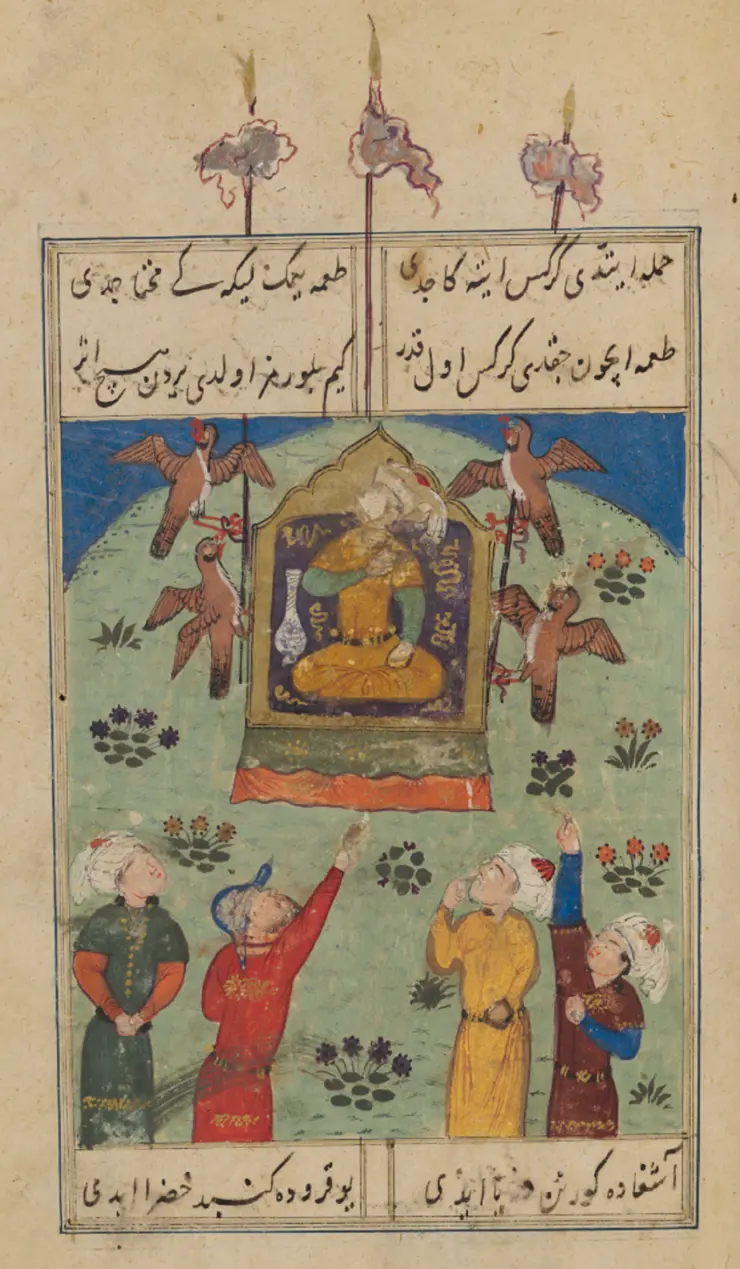 حمله ایتدی کرکس کاجدی طعمه یمک لیکه کے محتاجدی
طعمه ایچون جقدی کرکس اول قدر کیم بلورمز اولدی یردن هیچ اثر
آشغاده کورنن دریا ایدی یوقروده کنبد خضرا ایدی